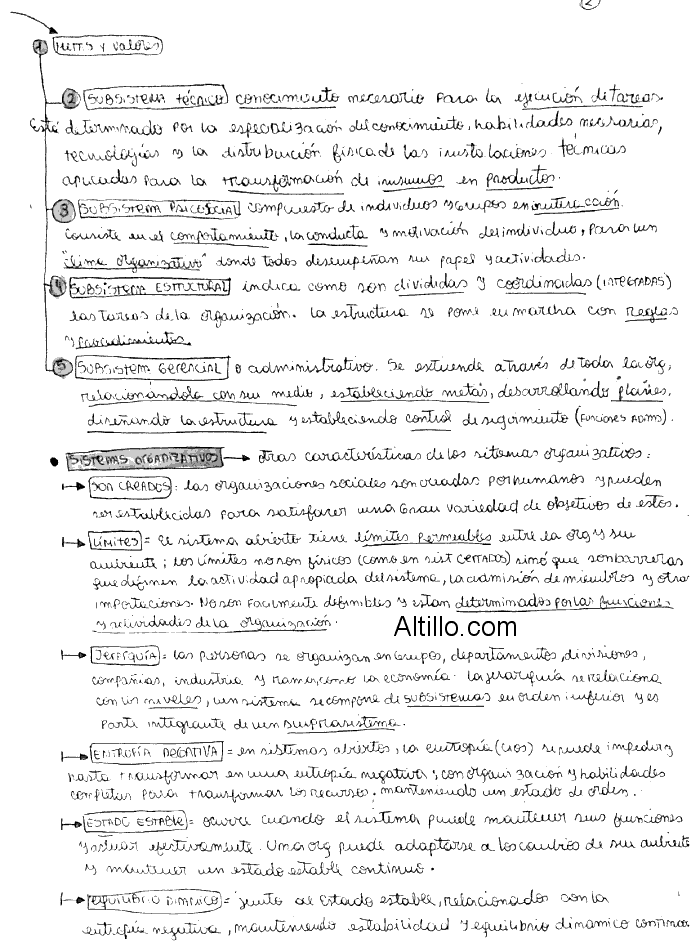 2
1 METAS y valores
2 SUBSISTEMA TÉCNICO conocimiento necesario para la ejecución de tareas.
Está determinado por la especialización del conocimiento, habilidades necesarias,
tecnologías y la distribución física de las instalaciones. Técnicas
aplicadas para la transformación de insumos en productos.
3 SUBSISTEMA PSICOSOCIAL compuesto de individuos y grupos en interacción.
Consiste en el comportamiento, la conducta y motivación del individuo, para un
"clima organizativo" donde todos desempeñan su papel y actividades.
4 SUBSISTEMA ESTRUCTURAL indica como son divididas y coordinadas (INTEGRADAS)
las tareas de la organización. La estructura se pone en marcha con reglas
y procedimientos.
5 SUBSISTEMA GERENCIAL o administrativo. Se extiende a través de toda la org,
relacionándola con su medio, estableciendo metas, desarrollando planes,
diseñando la estructura y estableciendo control de seguimiento (FUNCIONES ADMS).
• SISTEMAS ORGANIZATIVOS → otras características de los sitemas organizativos:
→ SON CREADOS: las organizaciones sociales son creadas por humanos y pueden
ser establecidas para satisfacer una Gran variedad de objetivos de estos.
→ LÍMITES = El sistema abierto tiene límites permeables entre la org y su
ambiente; los límites no son físicos (como en sist CERRADOS) sinó que son barreras
que definen la actividad apropiada del sistema, la admisión de miembros y otras
importaciones. No son facilmente definibles y estan determinados por las funciones
y actividades de la organización.
Altillo.com
→ JERARQUÍA = las personas se organizan en Grupos, departamentos, divisiones,
compañias, industria y ramas, como la economía. La jerarquía se relaciona
con los niveles, un sistema se compone de SUBSISTEMAS en orden inferior y es
parte integrante de un suprasistema.
→ ENTROPÍA NEGATIVA = en sistemas abiertos, la entropía (caos) se puede impedir y
hasta transformar en una entropía negativa, con organización y habilidades
completas para transformar los recursos, manteniendo un estado de orden.
→ ESTADO ESTABLE = ocurre cuando el sistema puede mantener sus funciones
y actuar efectivamente. Una org puede adaptarse a los cambios de su ambiente
y mantener un estado estable continuo.
→ EQUILIBRIO DINÁMICO = junto al Estado estable, relacionados con la
entropía negativa, manteniendo estabilidad y equilibrio dinamico continuo